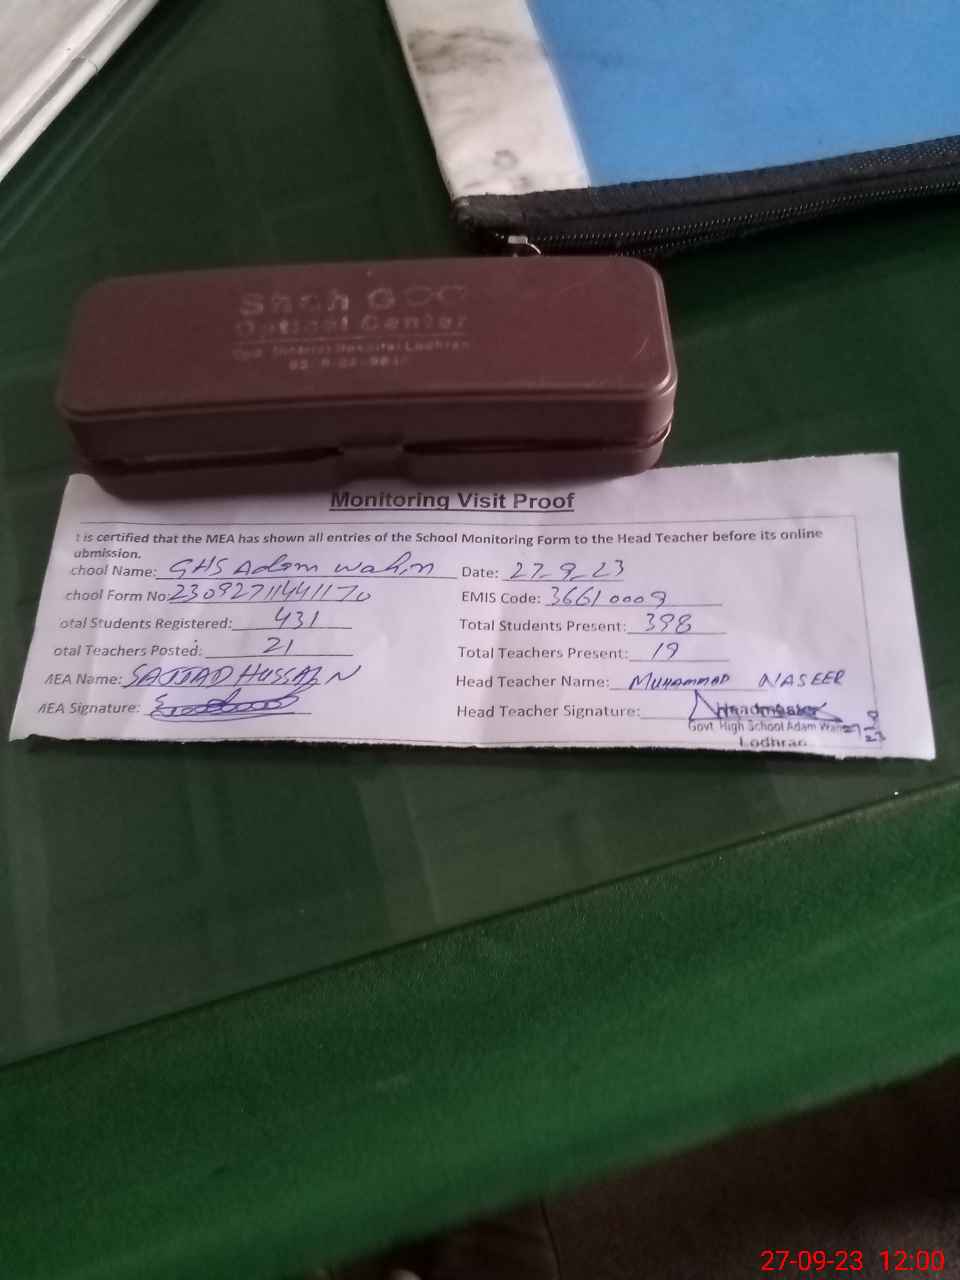 Optical Center
Monitoring Visit Proof
t is certified that the MEA has shown all entries of the School Monitoring Form to the Head Teacher before its online
ubmission.
chool Name: GHS Adam wahin Date: 27-9-23
chool Form No: 23092711441170 EMIS Code: 36610009
otal Students Registered: 431 Total Students Present: 398
otal Teachers Posted: 21 Total Teachers Present: 19
MEA Name: SAJJAD HUSSAIN Head Teacher Name: MUHAMMAD NASEER
MEA Signature: Head Teacher Signature:
Headmaster
Govt High School Adam Wahn
Lodhran
27-09-23 12:00